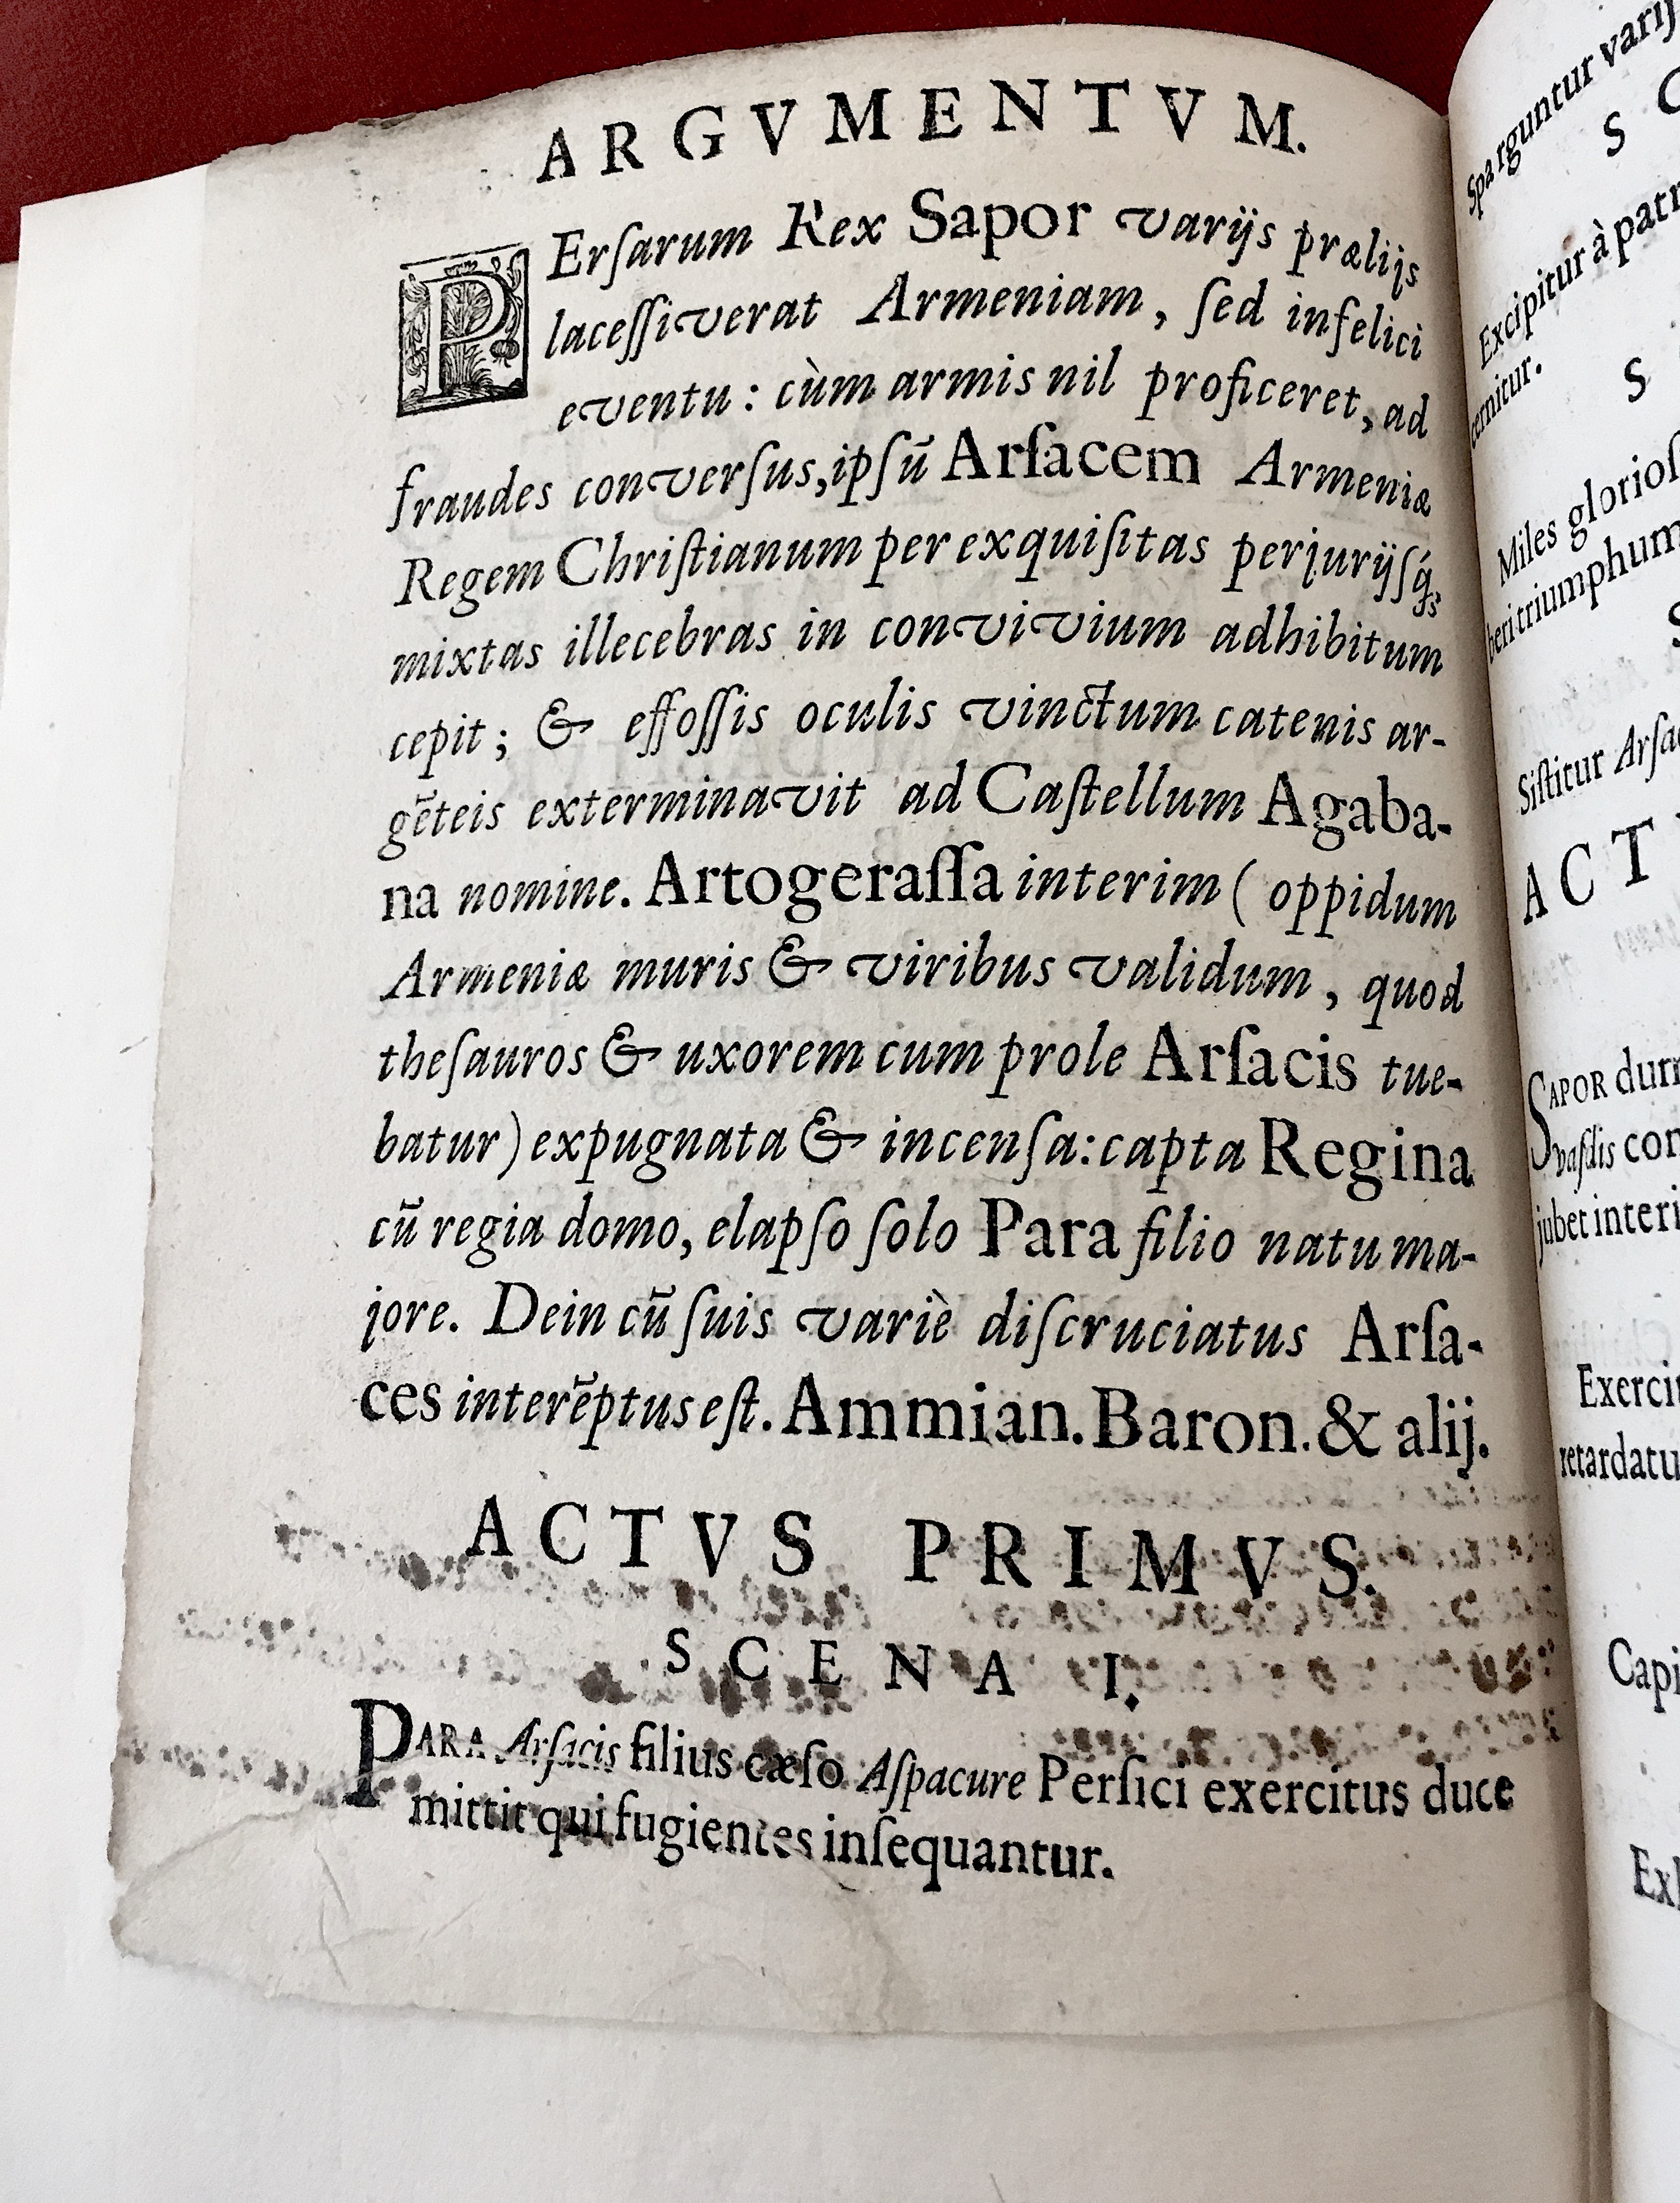 ARGVMENTVM.
PErſarum Rex Sapor varijs prælijs
laceſſiverat Armeniam, ſed infelici
eventu: cùm armis nil proficeret, ad
fraudes converſus, ipſū Arſacem Armeniæ
Regem Chriſtianum per exquiſitas perjurijſq́;
mixtas illecebras in convivium adhibitum
cepit; & effoſſis oculis vinctum catenis ar-
gēteis exterminavit ad Caſtellum Agaba-
na nomine. Artogeraſſa interim ( oppidum
Armeniæ muris & viribus validum, quod
theſauros & uxorem cum prole Arſacis tue-
batur) expugnata & incenſa: capta Regina
cū regia domo, elapſo ſolo Para filio natu ma-
jore. Dein cū ſuis variè diſcruciatus Arſa-
ces interēptus eſt. Ammian. Baron. & alij.
ACTVS PRIMVS.
SCENA I.
PARA Arſacis filius cæſo Aſpacure Perſici exercitus duce
mittit qui fugientes inſequantur.
Sparguntur varij
S C
Excipitur à patr
cernitur.
S
Miles glorioſ
triumphum
S
Siſtitur Arſac
ACT
SAPOR dum
vaſdis con
jubet interi
Exerci
retardatu
Capi
Ex